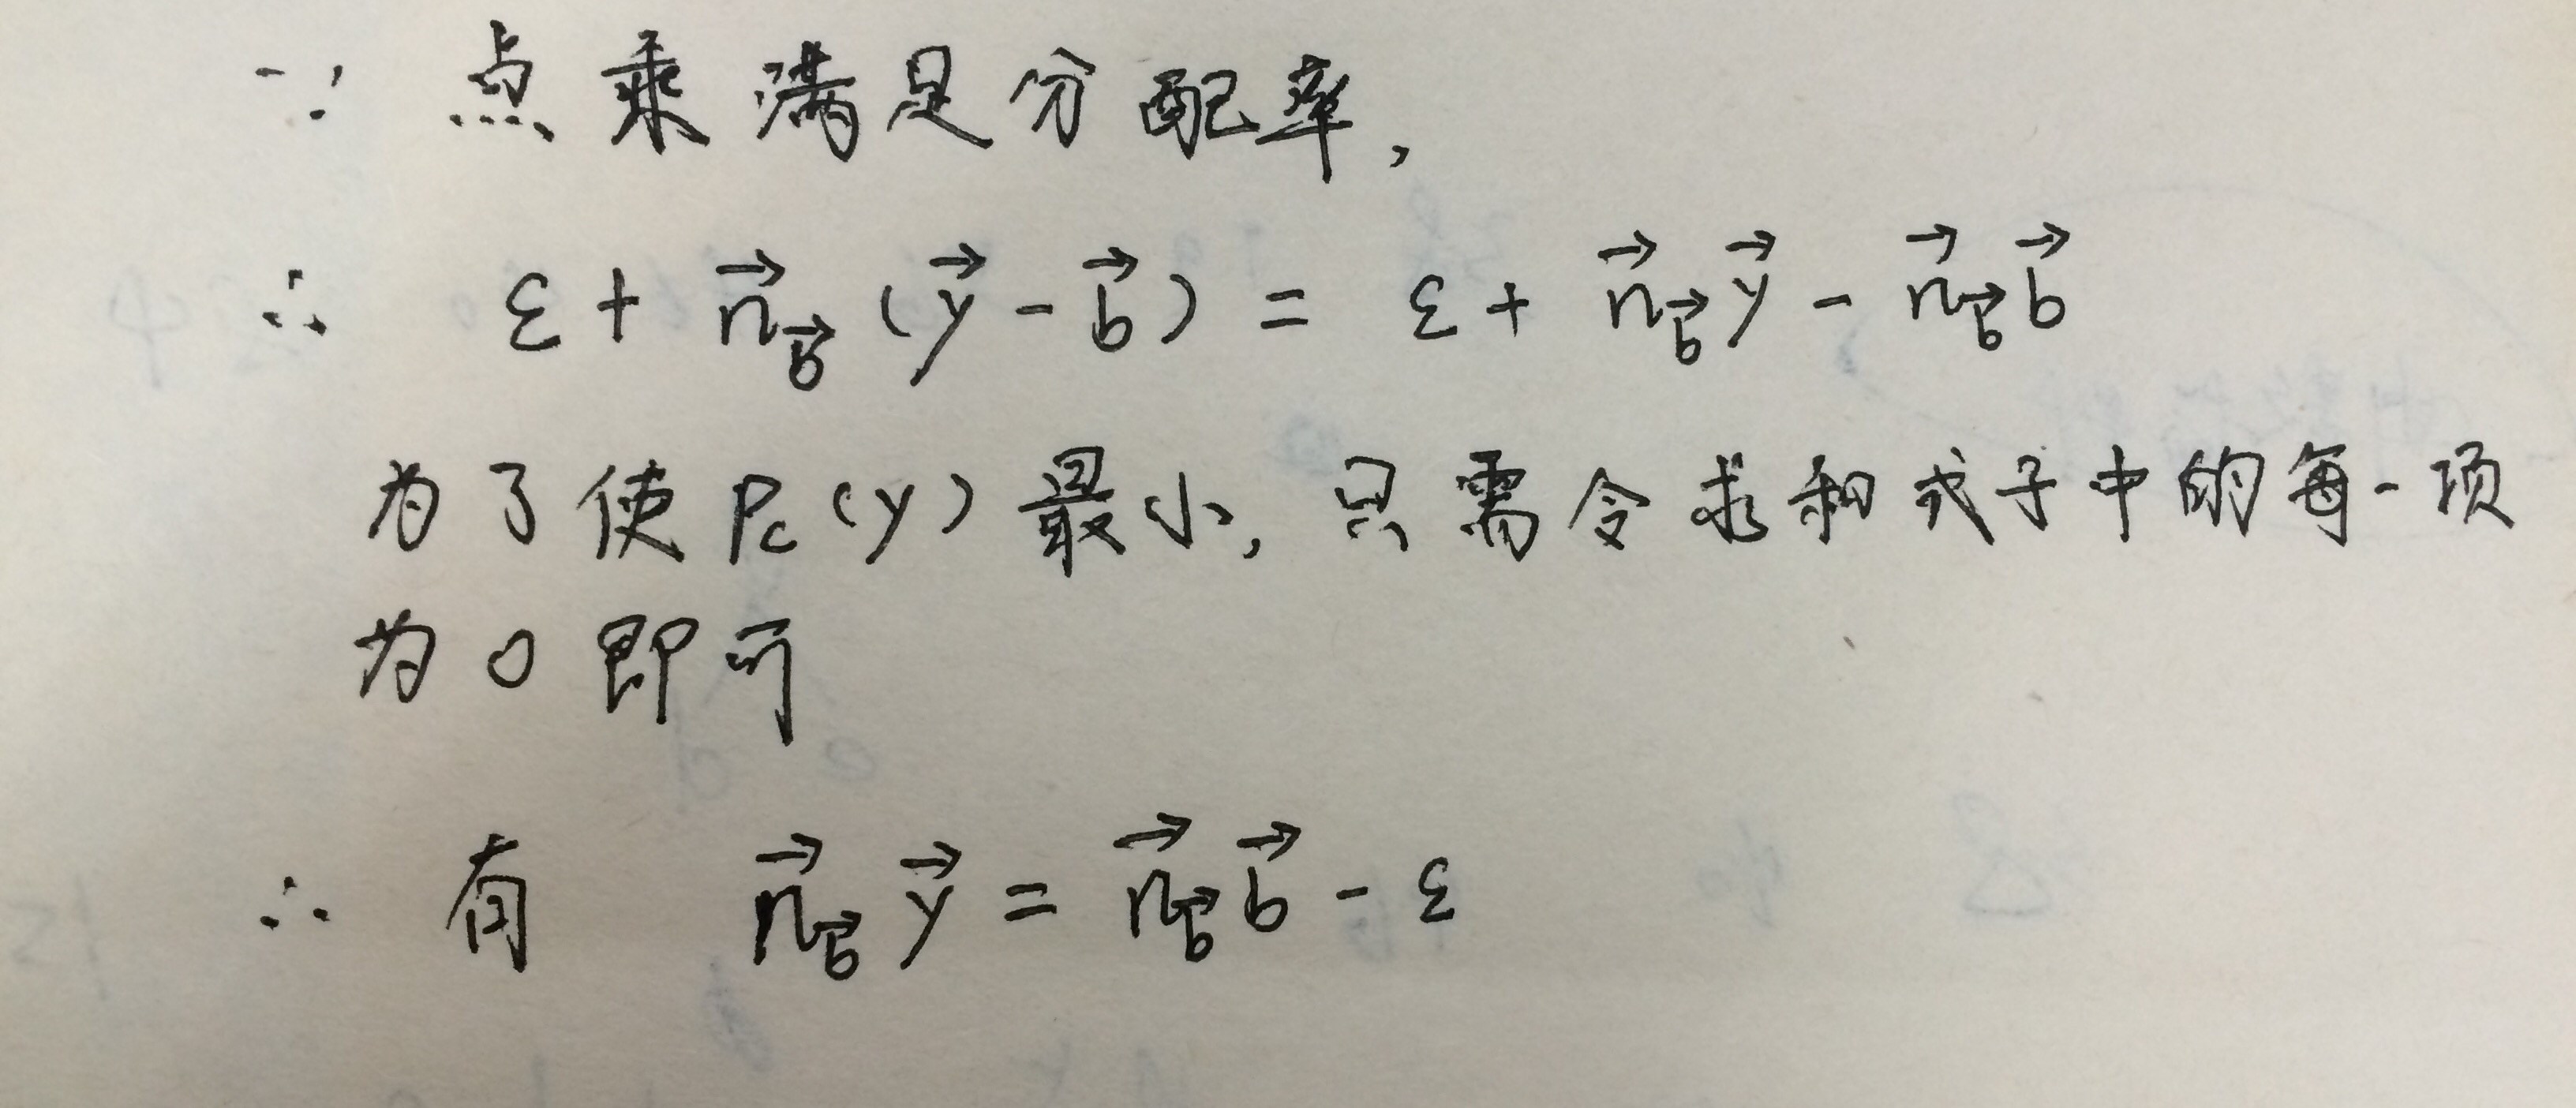 ∵ 点乘满足分配率,
∴ ε + n⃗_b⃗ (y⃗ - b⃗) = ε + n⃗_b⃗ y⃗ - n⃗_b⃗ b⃗
为了使 Pc(y) 最小, 只需令求和式子中的每一项
为 0 即可
∴ 有 n⃗_b⃗ y⃗ = n⃗_b⃗ b⃗ - ε